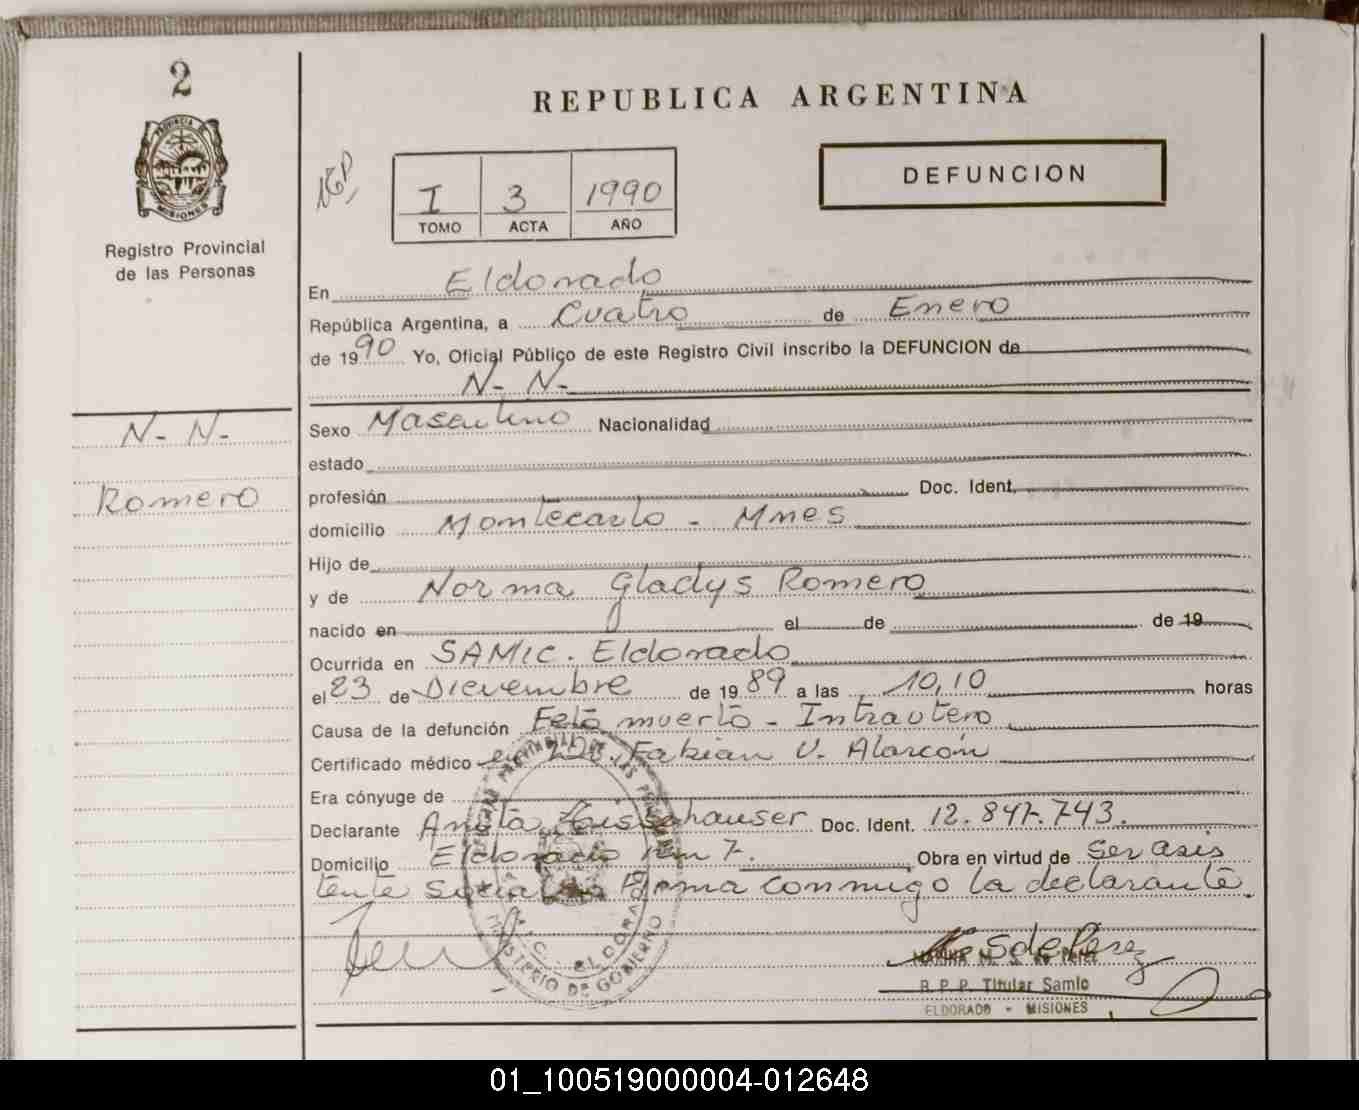 2
REPUBLICA ARGENTINA
PROVINCIA DE
MISIONES
Registro Provincial
de las Personas
I 3 1990
TOMO ACTA AÑO
DEFUNCION
En Eldorado
República Argentina, a Cuatro de Enero
de 1990 Yo, Oficial Público de este Registro Civil inscribo la DEFUNCION de
N- N-
N- N-
Romero
Sexo Masculino Nacionalidad
estado
profesión Doc. Ident.
domicilio Montecarlo - Mnes
Hijo de
y de Norma Gladys Romero
nacido en el de de 19
Ocurrida en SAMIC. Eldorado
el 23 de Dicvembre de 1989 a las 10,10 horas
Causa de la defunción Feto muerto - Intrautero
Certificado médico Fabian V. Alarcón
Era cónyuge de
Declarante Anita Doc. Ident. 12.847.743.
Domicilio Eldorado km 7. Obra en virtud de Ser asis
tente social Firma conmigo la declarante
ELDORADO
MINISTERIO DE GOBIERNO
R. P. P. Titular Samic
ELDORADO - MISIONES
01_100519000004-012648